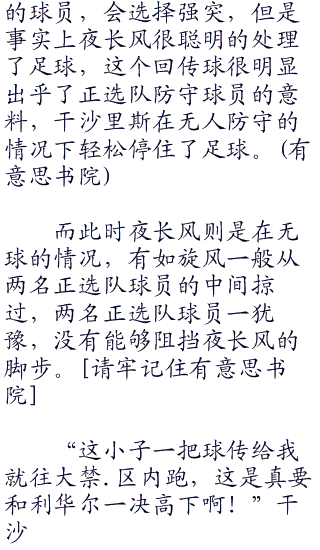 的球员，会选择强突，但是
事实上夜长风很聪明的处理
了足球，这个回传球很明显
出乎了正选队防守球员的意
料，干沙里斯在无人防守的
情况下轻松停住了足球。(有
意思书院)
而此时夜长风则是在无
球的情况，有如旋风一般从
两名正选队球员的中间掠
过，两名正选队球员一犹
豫，没有能够阻挡夜长风的
脚步。[请牢记住有意思书
院]
“这小子一把球传给我
就往大禁.区内跑，这是真要
和利华尔一决高下啊！”干
沙